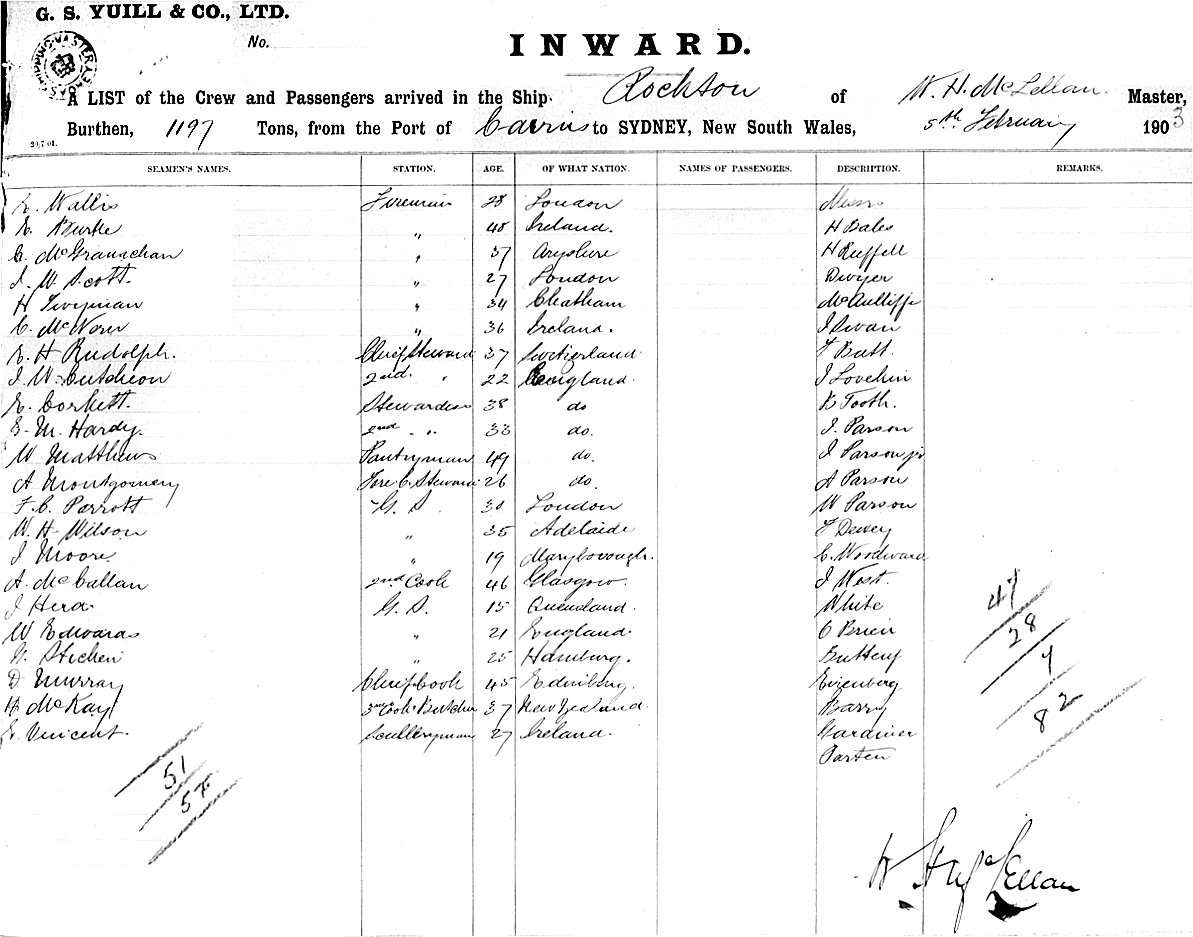 G. S. YUILL & CO., LTD.
No.
INWARD.
A LIST of the Crew and Passengers arrived in the Ship Rockton of W. H. McLellan Master,
Burthen, 1197 Tons, from the Port of Cairns to SYDNEY, New South Wales, 5th February 1903
20.7.01.
SEAMEN'S NAMES. STATION. AGE. OF WHAT NATION. NAMES OF PASSENGERS. DESCRIPTION. REMARKS.
Wallis Fireman 28 London
Rourke " 40 Ireland. H Bales
C. McGranachan " 37 Aryshire H Ruffell
J. W. Scott. " 27 London Dwyer
H Twyman " 34 Chatham McAuliffe
C. McVorn " 36 Ireland. J Swan
E. H Rudolph. Chief Steward 37 Switzerland. F Butt.
J. W. Cutcheon 2nd " 22 England. J Lovekin
E. Corkett. Stewardess 38 do K Tooth.
E. M. Hardy. 2nd " 33 do. J. Parson
W Matthews Pantryman 49 do. J Parson jr
A Montgomery Fore C. Steward 26 do. A Parson
F. C. Parrott G. S. 30 London W Parson
W. H. Wilson " 35 Adelaide F Dewey
J Moore " 19 Maryborough. C. Woodward
A. McCallan 2nd Cook 46 Glasgow. J West.
J Herd G. S. 15 Queensland. White
W Edwards " 21 England. O Brien
Stichen " 25 Hamburg. Buttery
D Murray Chief Cook 45 Edinburg. Eizenberg
H McKay 3rd Cook & Butcher 37 New Zealand. Barry
Vincent. Sculleryman 27 Ireland. Gardiner
Parten
47
28
7
82
51
W H McLellan